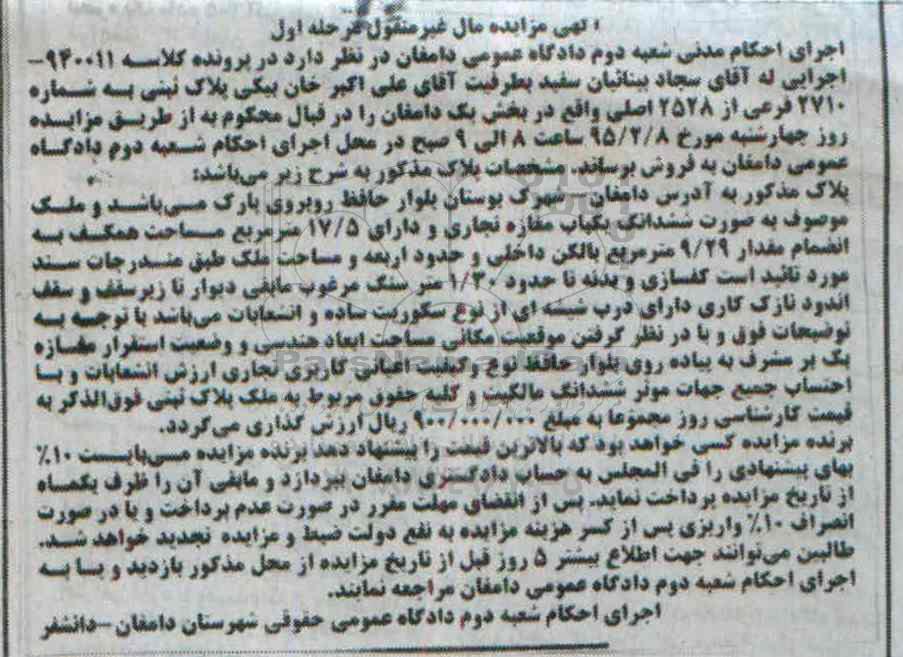 آگهی مزایده مال غیر منقول مرحله اول
اجرای احکام مدنی شعبه دوم دادگاه عمومی دامغان در نظر دارد در پرونده کلاسه ۹۴۰۰۱۱-
اجرایی له آقای سجاد بینائیان سفید بطرفیت آقای علی اکبر خان بیکی پلاک ثبتی به شماره
۲۷۱۰ فرعی از ۲۵۲۸ اصلی واقع در بخش یک دامغان را در قبال محکوم به از طریق مزایده
روز چهارشنبه مورخ ۹۵/۲/۸ ساعت ۸ الی ۹ صبح در محل اجرای احکام شعبه دوم دادگاه
عمومی دامغان به فروش برساند. مشخصات پلاک مذکور به شرح زیر می‌باشد:
پلاک مذکور به آدرس دامغان - شهرک بوستان بلوار حافظ روبروی پارک می‌باشد و ملک
موصوف به صورت ششدانگ یکباب مغازه تجاری و دارای ۱۷/۵ مترمربع مساحت همکف به
انضمام مقدار ۹/۲۹ مترمربع بالکن داخلی و حدود اربعه و مساحت ملک طبق مندرجات سند
مورد تائید است کفسازی و بدنه تا حدود ۱/۳۰ متر سنگ مرغوب مابقی دیوار تا زیر سقف و سقف
اندود نازک کاری دارای درب شیشه ای از نوع سکوریت ساده و انشعابات می‌باشد با توجه به
توضیحات فوق و با در نظر گرفتن موقعیت مکانی مساحت ابعاد هندسی و وضعیت استقرار مغازه
یک بر مشرف به پیاده روی بلوار حافظ نوع وکیفیت اعیانی کاربری تجاری ارزش انشعابات و با
احتساب جمیع جهات موثر ششدانگ مالکیت و کلیه حقوق مربوط به ملک پلاک ثبتی فوق‌الذکر به
قیمت کارشناسی روز مجموعا به مبلغ ۹۰۰/۰۰۰/۰۰۰ ریال ارزش گذاری می‌گردد.
برنده مزایده کسی خواهد بود که بالاترین قیمت را پیشنهاد دهد برنده مزایده می‌بایست ۱۰٪
بهای پیشنهادی را فی المجلس به حساب دادگستری دامغان بپردازد و مابقی آن را ظرف یکماه
از تاریخ مزایده پرداخت نماید. پس از انقضای مهلت مقرر در صورت عدم پرداخت و یا در صورت
انصراف ۱۰٪ واریزی پس از کسر هزینه مزایده به نفع دولت ضبط و مزایده تجدید خواهد شد.
طالبین می‌توانند جهت اطلاع بیشتر ۵ روز قبل از تاریخ مزایده از محل مذکور بازدید و یا به
اجرای احکام شعبه دوم دادگاه عمومی دامغان مراجعه نمایند.
اجرای احکام شعبه دوم دادگاه عمومی حقوقی شهرستان دامغان -دانشفر